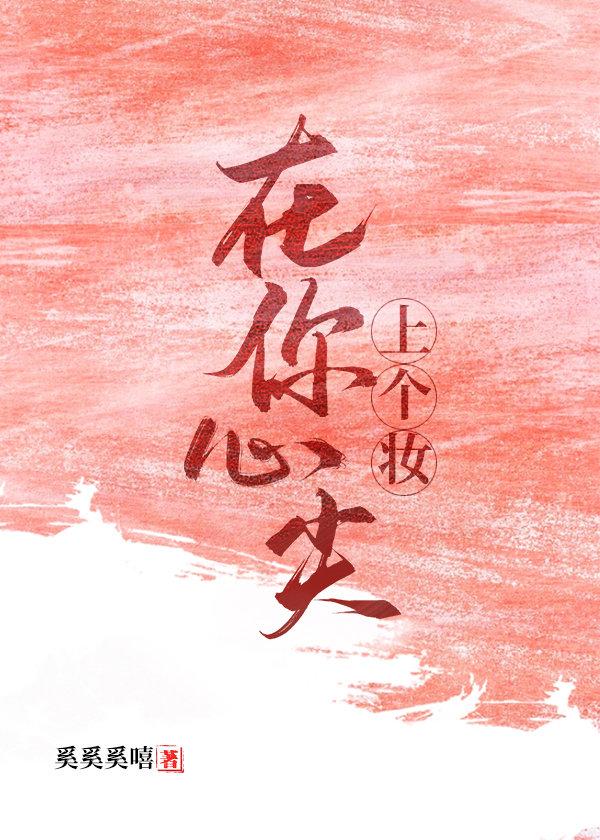 在你心尖
上个妆
奚奚奚嘻著